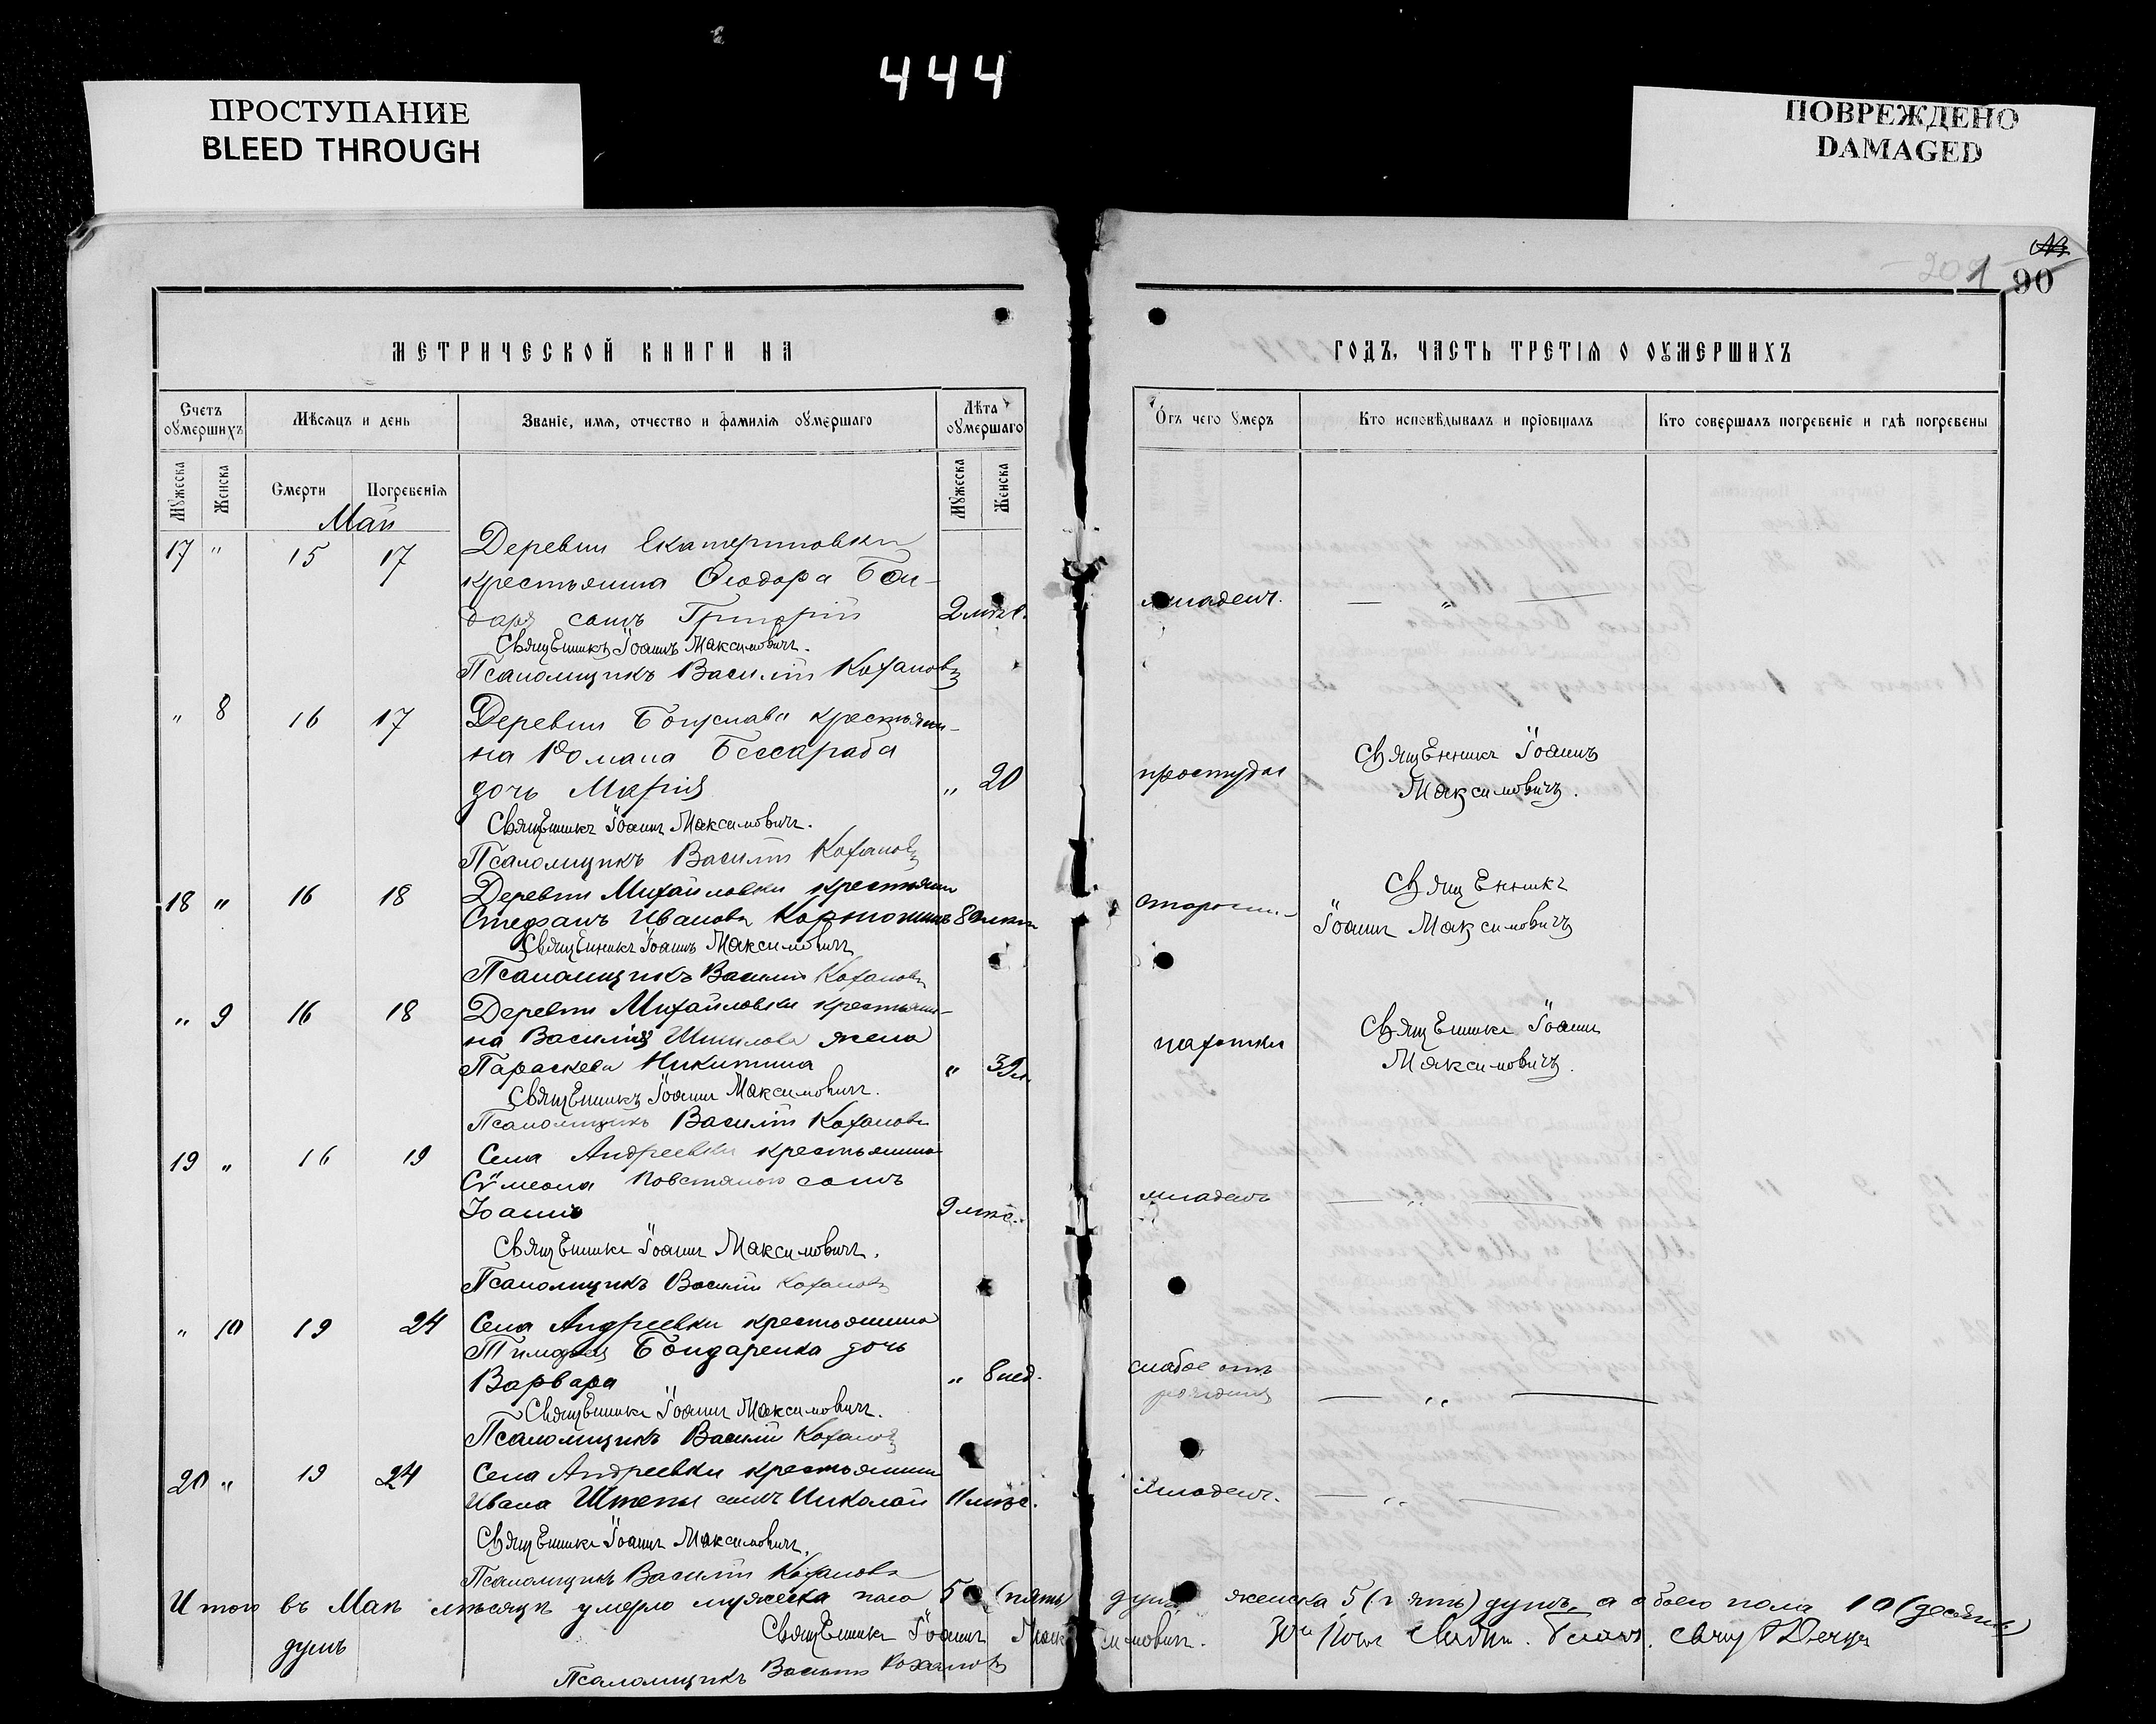 444
ПРОСТУПАНИЕ
BLEED THROUGH
ПОВРЕЖДЕНО
DAMAGED
201
90
МЕТРИЧЕСКОЙ КНИГИ НА
ГОДЪ, ЧАСТЬ ТРЕТІЯ О ОУМЕРШИХЪ
Счетъ оумершихъ
Мѣсяцъ и день
Званіе, имя, отчество и фамилія оумершаго
Лѣта оумершаго
Отъ чего умеръ
Кто исповѣдывалъ и пріобщалъ
Кто совершалъ погребеніе и гдѣ погребены
Мужеска
Женска
Смерти
Погребенія
Мужеска
Женска
Май
17 " 15 17 Деревни Екатериновки
крестьянина Ѳеодора Бон-
даря сынъ Григорій 2 мѣс. младенч. — " —
Священникъ Іоаннъ Максимовичъ.
Псаломщикъ Василій Кохановъ
" 8 16 17 Деревни Богуслава крестьяни-
на Романа Бессараба
дочь Марія " 20 простуды Священникъ Іоаннъ
Максимовичъ.
Священникъ Іоаннъ Максимовичъ.
Псаломщикъ Василій Кохановъ
18 " 16 18 Деревни Михайловки крестьянин
Стефанъ Ивановъ 80 лѣтъ Священникъ
Іоаннъ Максимовичъ
Священникъ Іоаннъ Максимовичъ
Псаломщикъ Василій Кохановъ
" 9 16 18 Деревни Михайловки крестьяни-
на Василія Шипилова жена
Параскева Никитина " 39 л. чахотки Священникъ Іоаннъ
Максимовичъ.
Священникъ Іоаннъ Максимовичъ.
Псаломщикъ Василій Кохановъ
19 " 16 19 Села Андреевки крестьянина
Сѵмеона Повстяного сынъ
Іоаннъ 9 мѣс. младенч — " —
Священникъ Іоаннъ Максимовичъ.
Псаломщикъ Василій Кохановъ
" 10 19 24 Села Андреевки крестьянина
Тимофея Бондаренка дочь
Варвара " 8 нед. слабое отъ
рожденія — " —
Священникъ Іоаннъ Максимовичъ.
Псаломщикъ Василій Кохановъ
20 " 19 24 Села Андреевки крестьянина
Ивана Штепы сынъ Николай 11 мѣс. младенч. — " —
Священникъ Іоаннъ Максимовичъ.
Псаломщикъ Василій Кохановъ
Итого въ Маѣ мѣсяцѣ умерло мужеска пола 5 (пять) душъ, женска 5 (пять) душъ, а обоего пола 10 (десять)
душъ Священникъ Іоаннъ Максимовичъ.
Псаломщикъ Василій Кохановъ